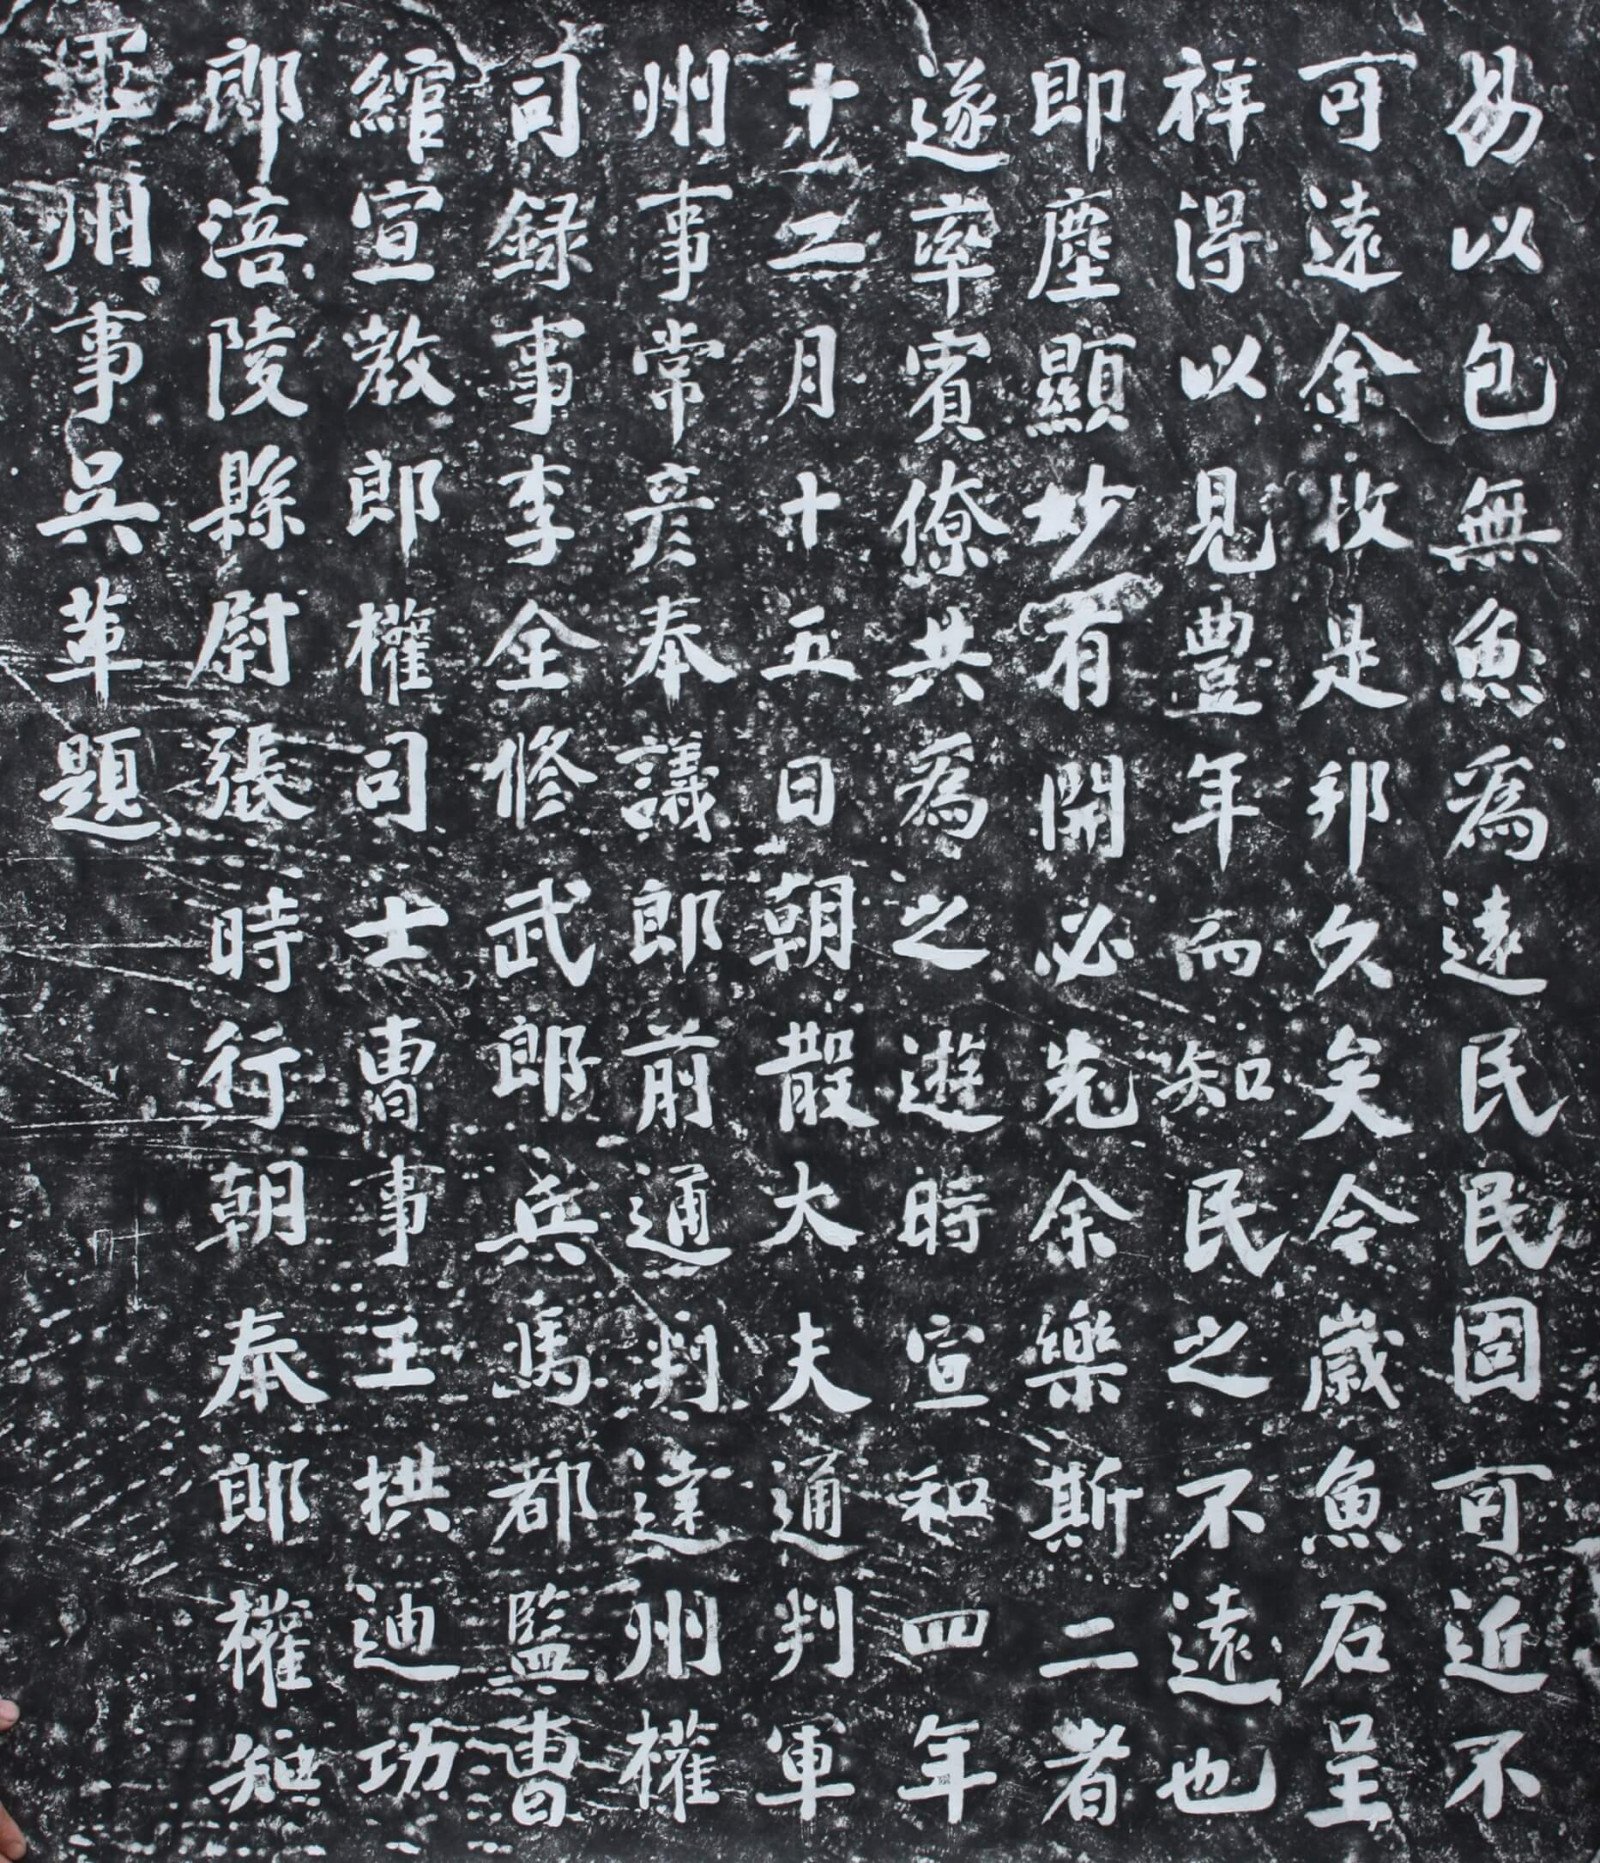 易以包無魚爲遠民民固可近不
可遠余牧是邦久矣今歲魚石呈
祥得以見豐年而知民之不遠也
即塵顯妙有開必先余樂斯二者
遂率賓僚共爲之遊時宣和四年
十二月十五日朝散大夫通判軍
州事常彦奉議郎前通判達州權
司録事李全修武郎兵馬都監曹
綰宣教郎權司士曹事王拱迪功
郎涪陵縣尉張時行朝奉郎權知
軍州事吳革題